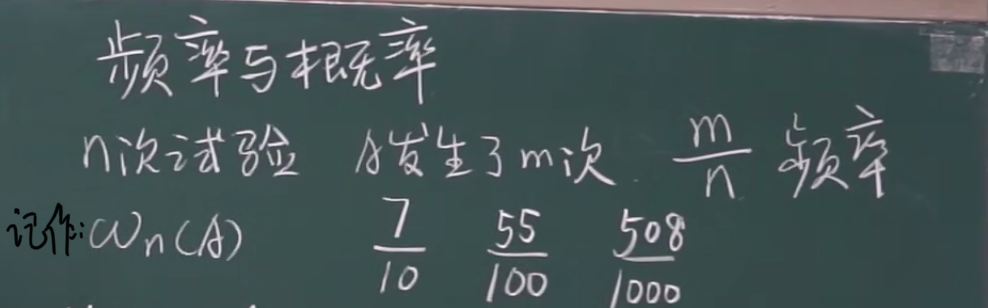 频率与概率
n次试验 A发生了m次. m/n 频率
记作: ωn(A) 7/10 55/100 508/1000